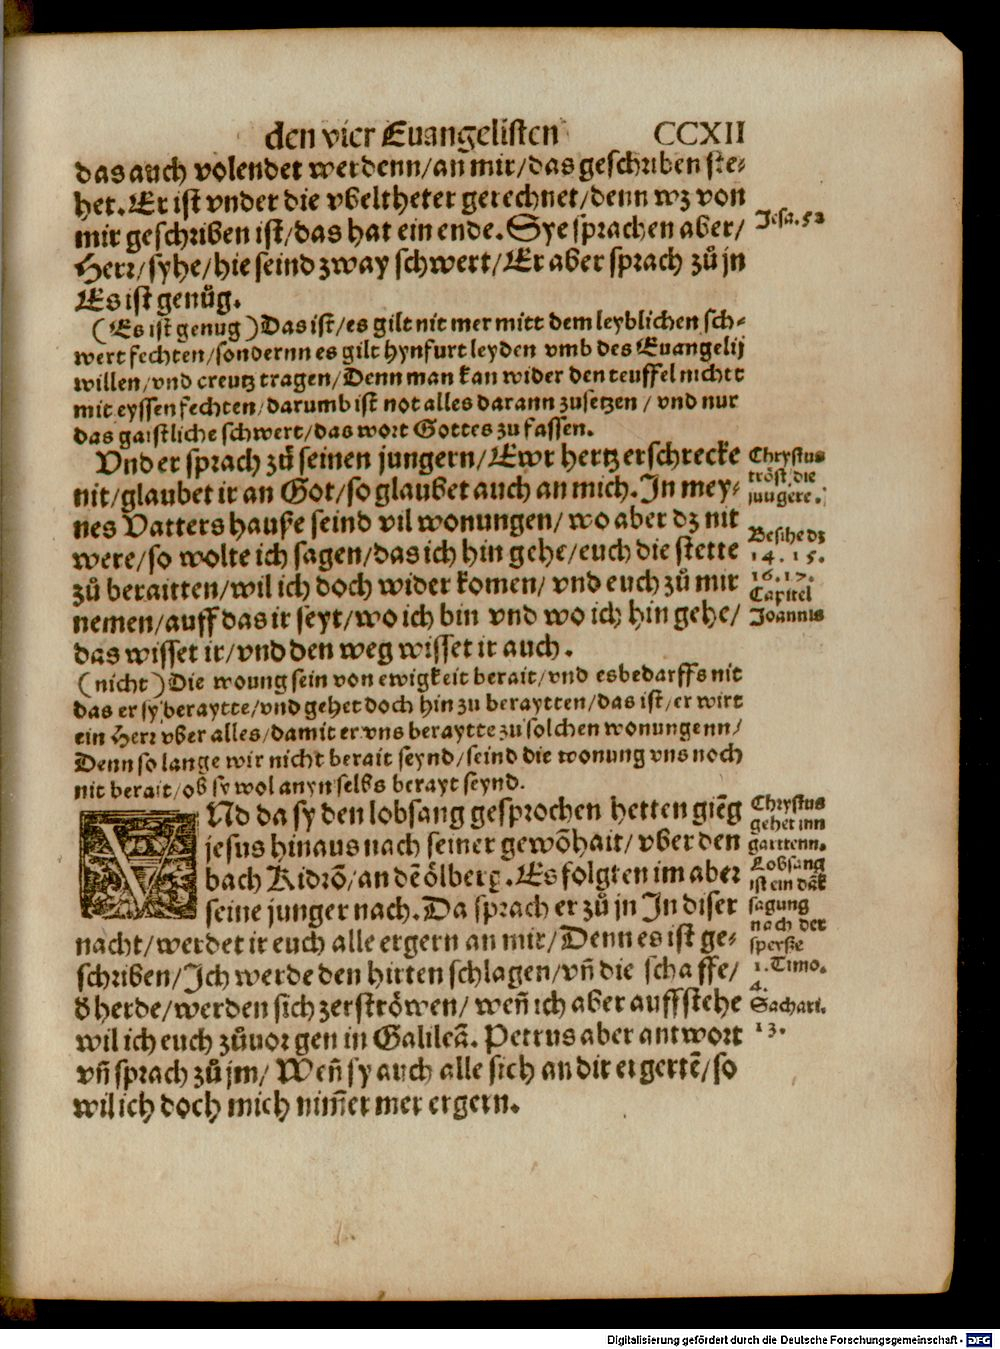 den vier Euangelisten CCXII
das auch volendet werdenn/an mir/das geschriben ste-
het. Er ist vnder die vbeltheter gerechnet/denn wz von
mir geschriben ist/das hat ein ende. Sye sprachen aber/
Herr/syhe/hie seind zway schwert/Er aber sprach zů jn
Es ist genůg.
Jesa. 53
(Es ist genug) Das ist/es gilt nit mer mitt dem leyblichen sch-
wert fechten/sondernn es gilt hynfurt leyden vmb des Euangelij
willen/vnd creutz tragen/Denn man kan wider den teuffel nichtt
mit eyssen fechten/darumb ist not alles darann zusetzen/vnd nur
das gaistliche schwert/das wort Gottes zu fassen.
Vnd er sprach zů seinen jungern/Ewr hertz erschrecke
nit/glaubet ir an Got/so glaubet auch an mich. In mey-
nes Vatters hauße seind vil wonungen/wo aber dz nit
were/so wolte ich sagen/das ich hin gehe/euch die stette
zů beraitten/wil ich doch wider komen/vnd euch zů mir
nemen/auff das ir seyt/wo ich bin vnd wo ich hin gehe/
das wisset ir/vnd den weg wisset ir auch.
Chrystus
tröst die
jungere.
Besihe dz
14. 15.
16. 17.
Capitel
Joannis
(nicht) Die woung sein von ewigkeit berait/vnd es bedarffs nit
das er sy beraytte/vnd gehet doch hin zu beraytten/das ist/er wirt
ein Herr vber alles/damit er vns beraytte zu solchen wonungenn/
Denn so lange wir nicht berait seynd/seind die wonung vns noch
nit berait/ob sy wol an yn selbs berayt seynd.
VNd da sy den lobsang gesprochen hetten giẽg
jesus hinaus nach seiner gewõhait/vber den
bach Kidrõ/an dẽ ölberg. Es folgten im aber
seine junger nach. Da sprach er zů jn In diser
nacht/werdet ir euch alle ergern an mir/Denn es ist ge-
schriben/Ich werde den hirten schlagen/vñ die schaffe/
ď herde/werden sich zerströwen/weñ ich aber auffstehe
wil ich euch zůuor gen in Galileã. Petrus aber antwort
vñ sprach zů jm/Weñ sy auch alle sich an dir ergertẽ/so
wil ich doch mich nim̃er mer ergern.
Chrystus
gehet inn
garttenn.
Lobsang
ist ein dãk
sagung
nach der
speyße
1. Timo.
4.
Sachari.
13.
Digitalisierung gefördert durch die Deutsche Forschungsgemeinschaft - DFG